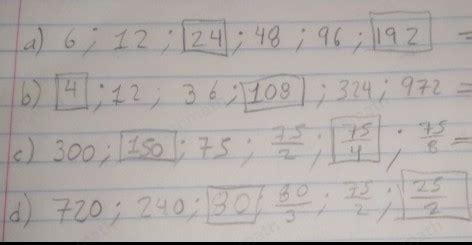 a) 6 ; 12 ; 24 ; 48 ; 96 ; 192 =
b) 4 ; 12 ; 36 ; 108 ; 324 ; 972 =
c) 300 ; 150 ; 75 ; 75/2 ; 75/4 ; 75/8 =
d) 720 ; 240 ; 80 ; 80/3 ; 75/2 ; 25/2